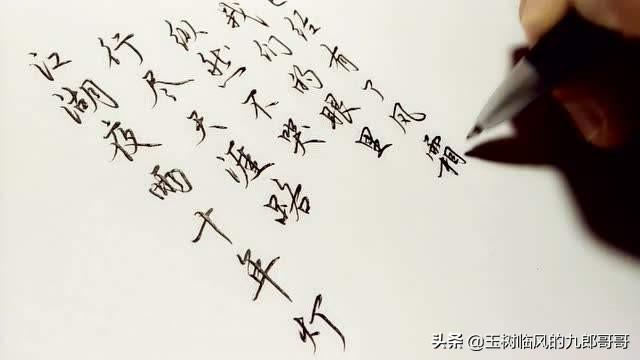 江湖夜雨十年灯
行尽天涯路
纵然不哭
我们的眼里
已经有了风霜
头条 @玉树临风的九郎哥哥